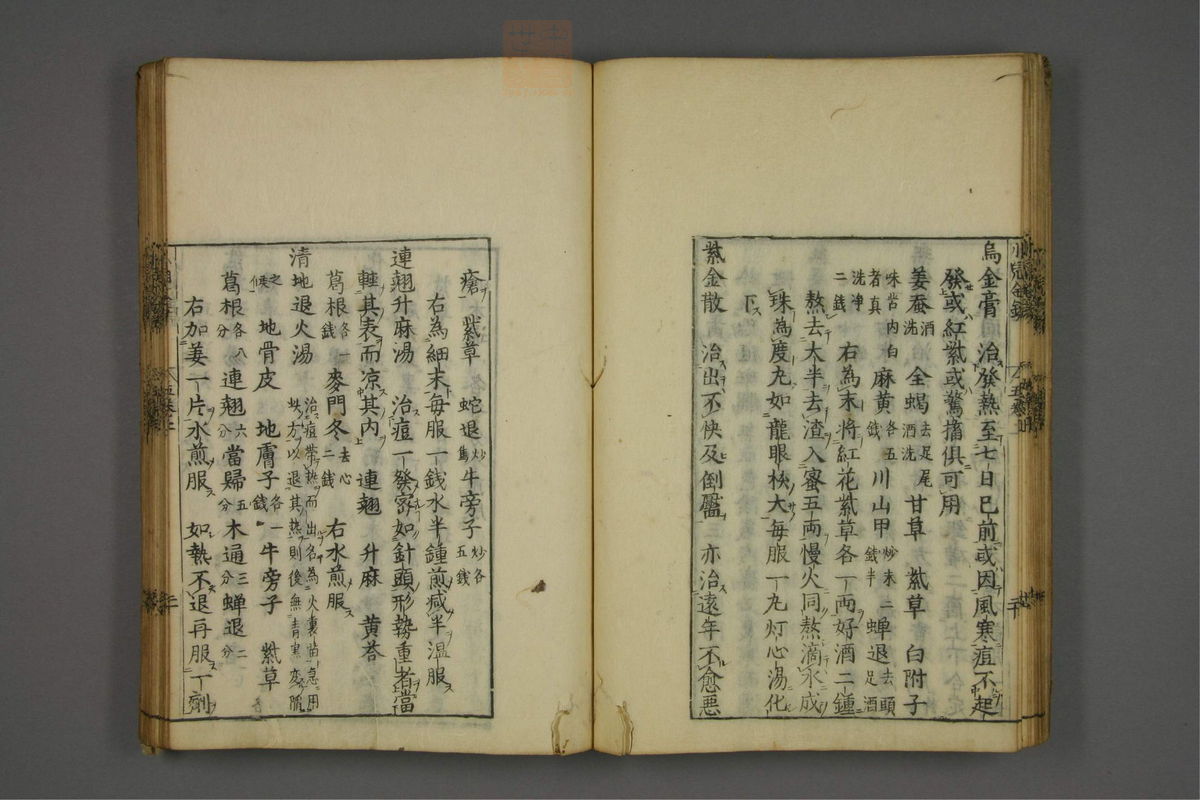 烏金膏　治發熱至七日已前或因風寒痘不起
發或紅紫或驚搐俱可用
姜蚕酒洗　全蝎去足尾酒洗　甘草　紫草　白附子
味苦內白者真洗淨二錢　麻黄各五錢　川山甲炒末二錢半　蟬退去頭足酒
右為末將紅花紫草各一两好酒二鍾
熬去大半去渣入蜜五两慢火同熬滴水成
珠為度丸如龍眼核大每服一丸灯心湯化
下
紫金散　治出不快及倒靨　亦治遠年不愈悪
瘡　紫草　蛇退炒焦　牛旁子炒各五錢
右為細末每服一錢水半鍾煎减半温服
連翹升麻湯　治痘一發宻如針頭形勢重者當
輕其表而凉其內　連翹　升麻　黄芩
葛根各一錢　麥門冬去心二錢　右水煎服
清地退火湯　治痘帶熱而出名為火裏苗急用此方以退其熱則後無青黒変陷之候
地骨皮　地膚子各一錢　牛旁子　紫草
葛根各八分　連翹六分　當歸五分　木通三分　蟬退二分
右加姜一片水煎服　如熱不退再服一劑